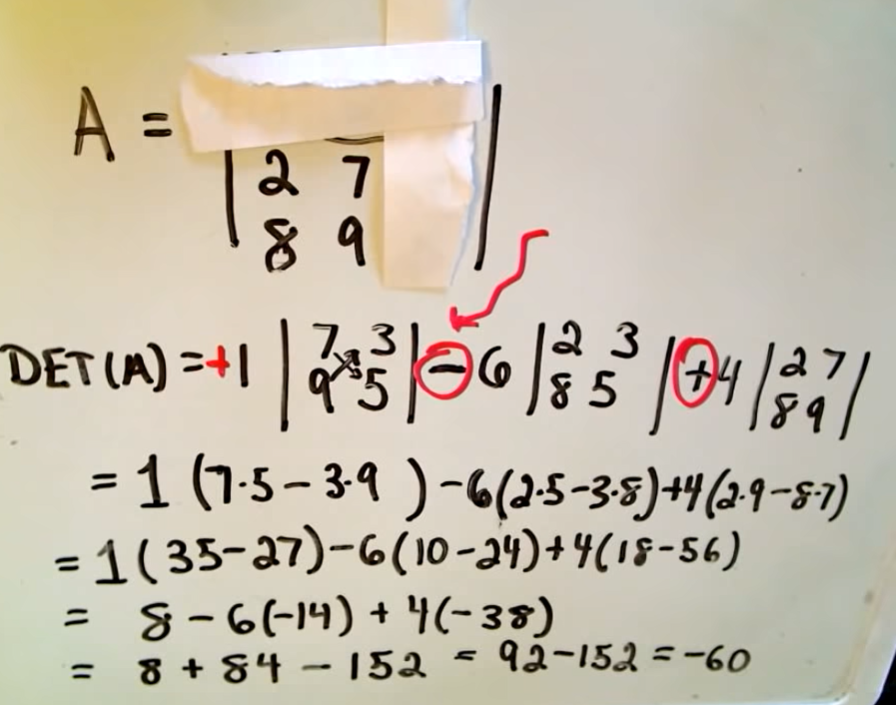 A =
| 2 7 |
8 9
DET(A) = +1 | 7 3 | − 6 | 2 3 | + 4 | 2 7 |
9 5 8 5 8 9
= 1 (7·5 − 3·9 ) − 6(2·5 − 3·8) + 4(2·9 − 8·7)
= 1(35 − 27) − 6(10 − 24) + 4(18 − 56)
= 8 − 6(−14) + 4(−38)
= 8 + 84 − 152 = 92 − 152 = −60